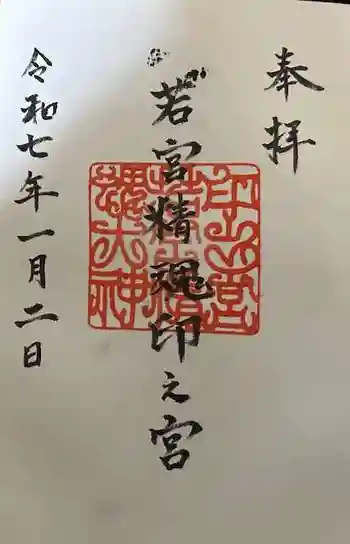 奉拝
若宮精魂印之宮
令和七年一月二日